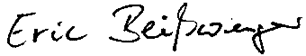 Eric Beißwenger